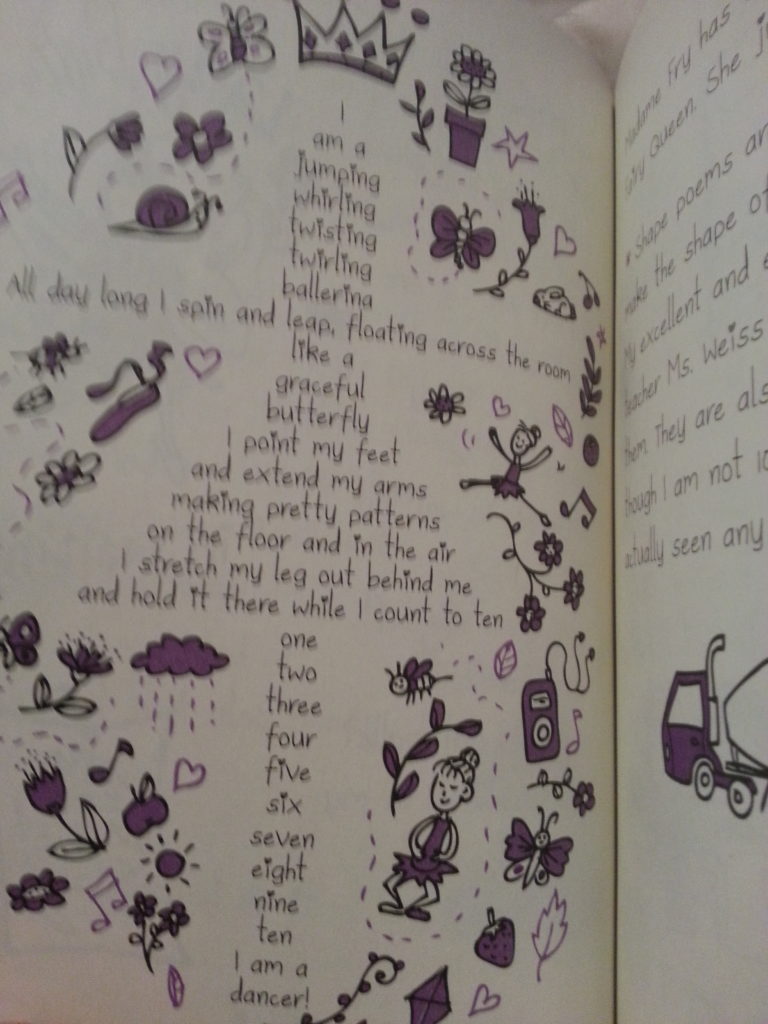 I
am a
jumping
whirling
twisting
twirling
ballerina
All day long I spin and leap, floating across the room
like a
graceful
butterfly
I point my feet
and extend my arms
making pretty patterns
on the floor and in the air
I stretch my leg out behind me
and hold it there while I count to ten
one
two
three
four
five
six
seven
eight
nine
ten
I am a
dancer!
Madame Fry has
Fairy Queen. She
* Shape poems
make the shape of
My excellent and
teacher Ms. Weiss
them. They are
though I am not
actually seen any